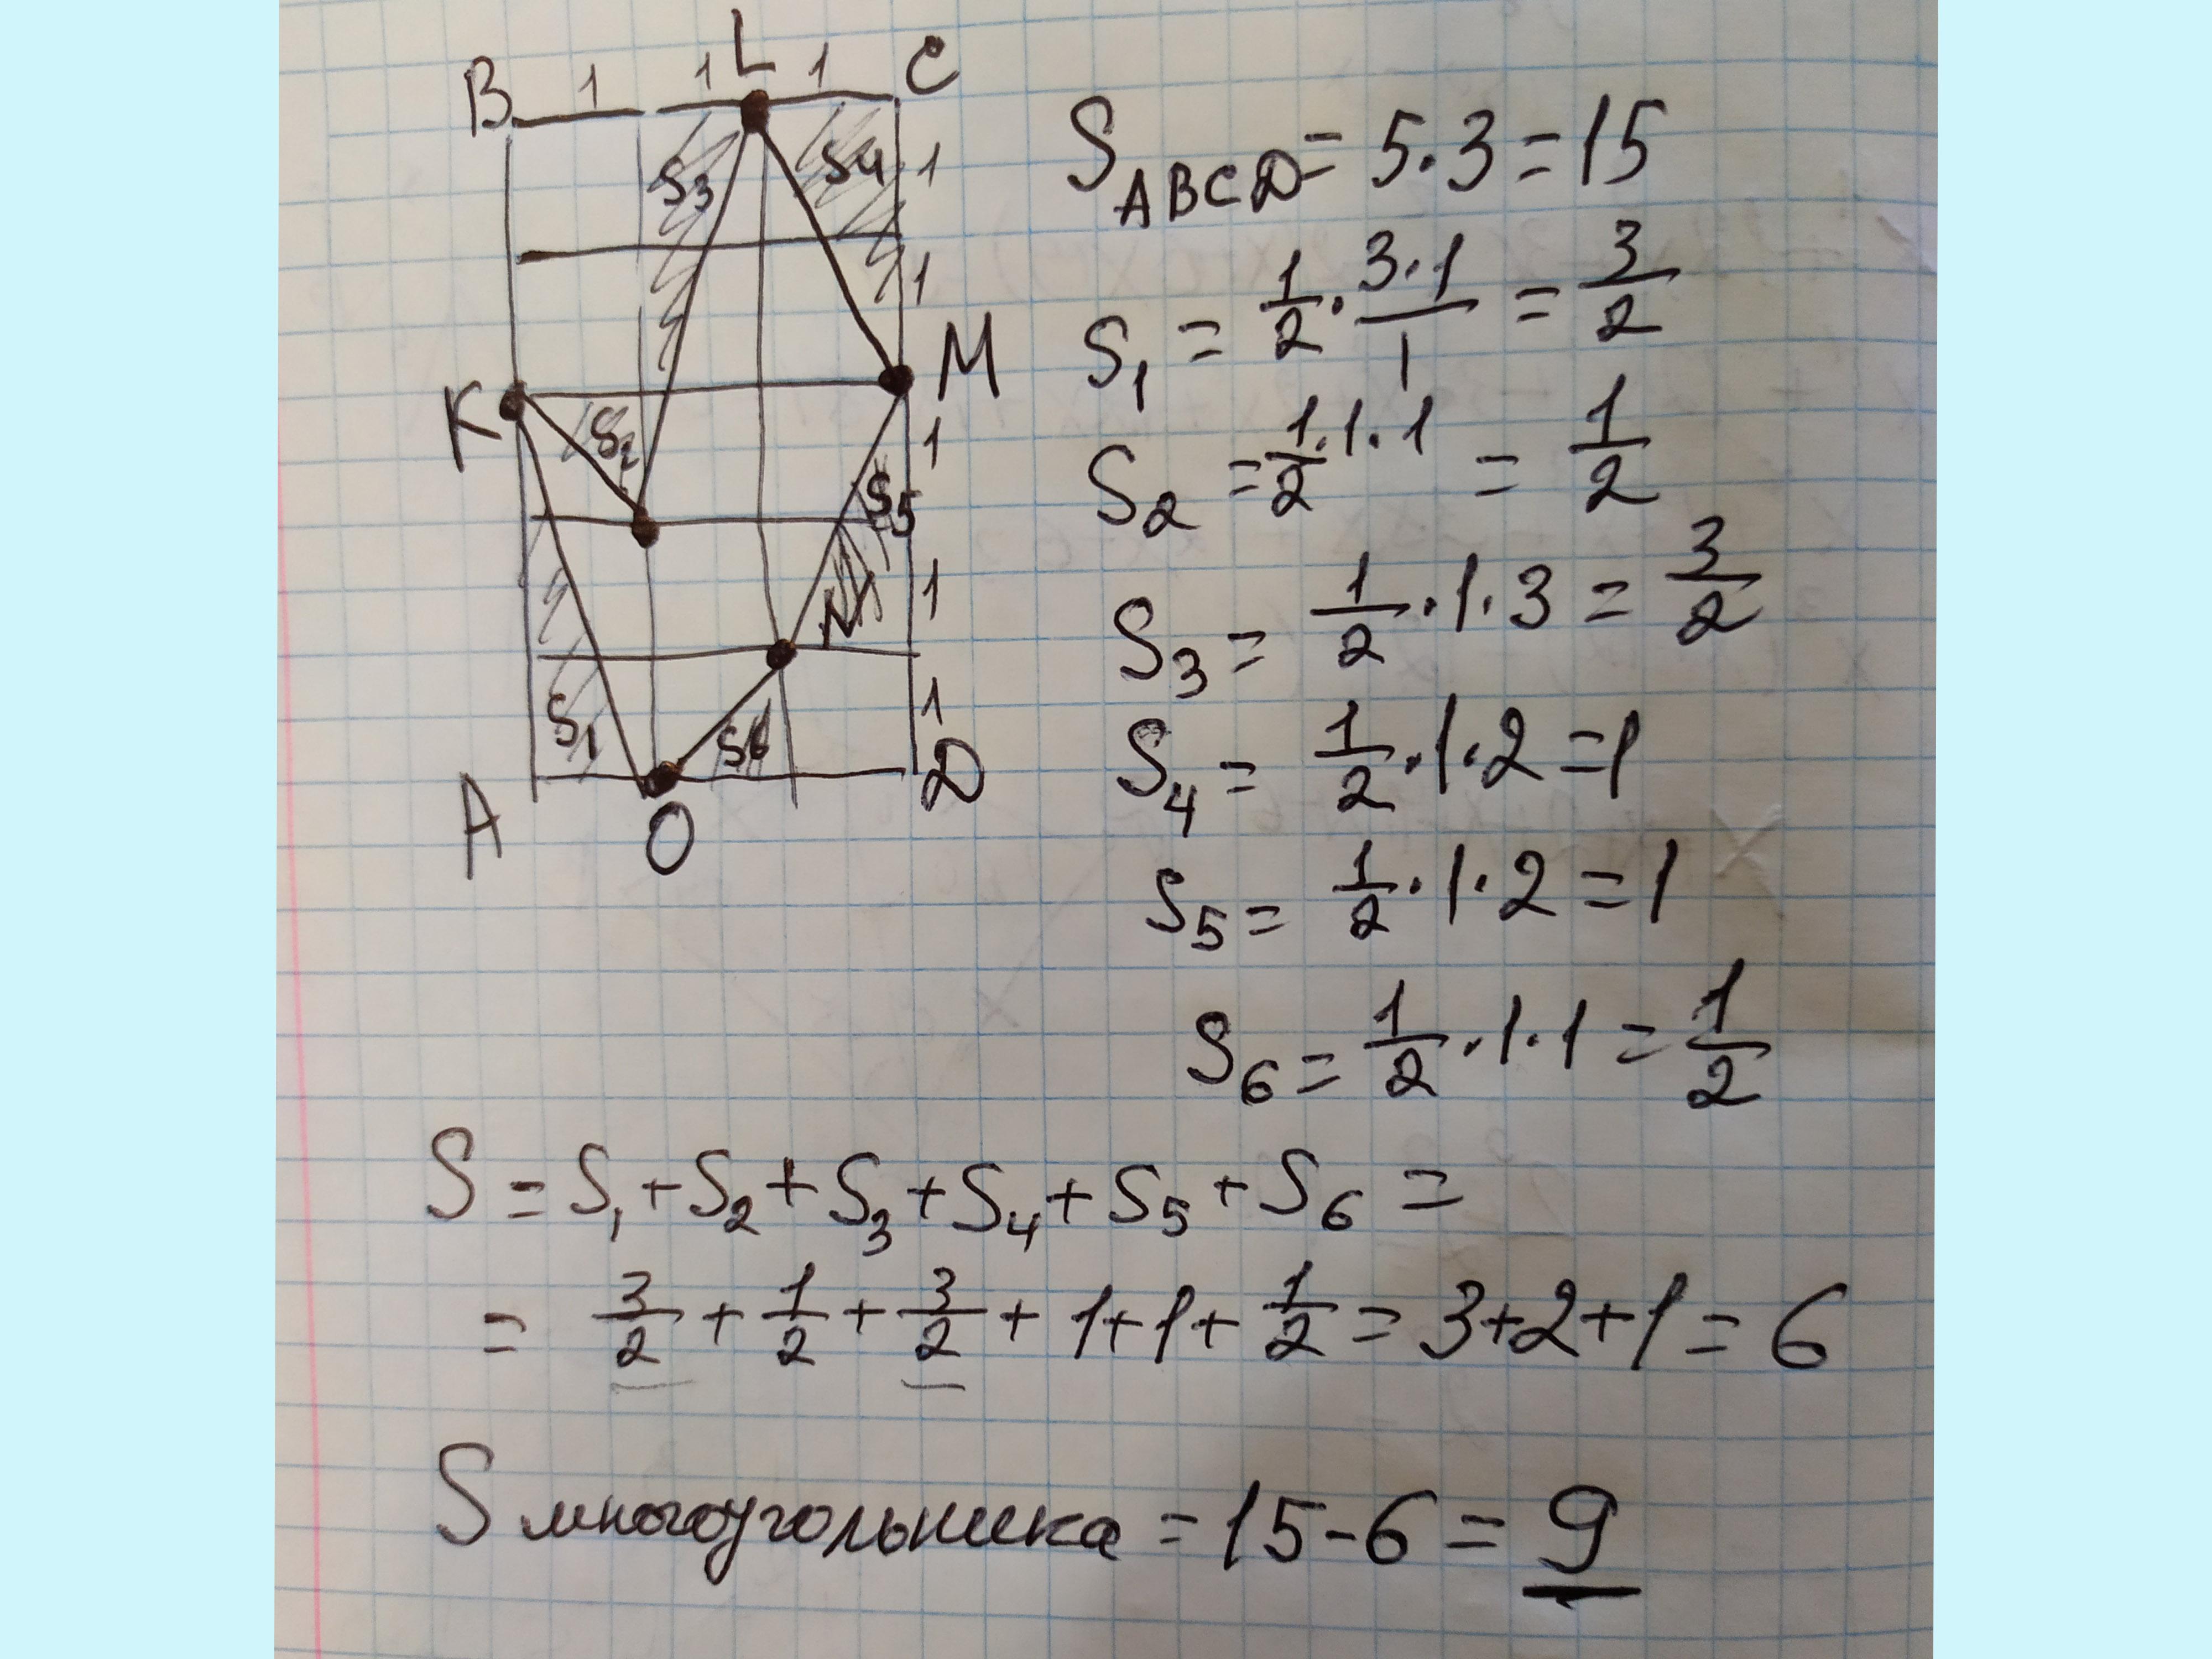 B 1 1 L 1 C
S3 S4 1
1
K M
S2 1
S5
1
N
S1 S6 1
A O D
S ABCD = 5·3 = 15
S1 = 1/2 · 3·1/1 = 3/2
S2 = 1/2·1·1 = 1/2
S3 = 1/2 ·1·3 = 3/2
S4 = 1/2 ·1·2 = 1
S5 = 1/2 ·1·2 = 1
S6 = 1/2 ·1·1 = 1/2
S = S1 + S2 + S3 + S4 + S5 + S6 =
= 3/2 + 1/2 + 3/2 + 1+1+ 1/2 = 3+2+1 = 6
S многоугольника = 15-6 = 9